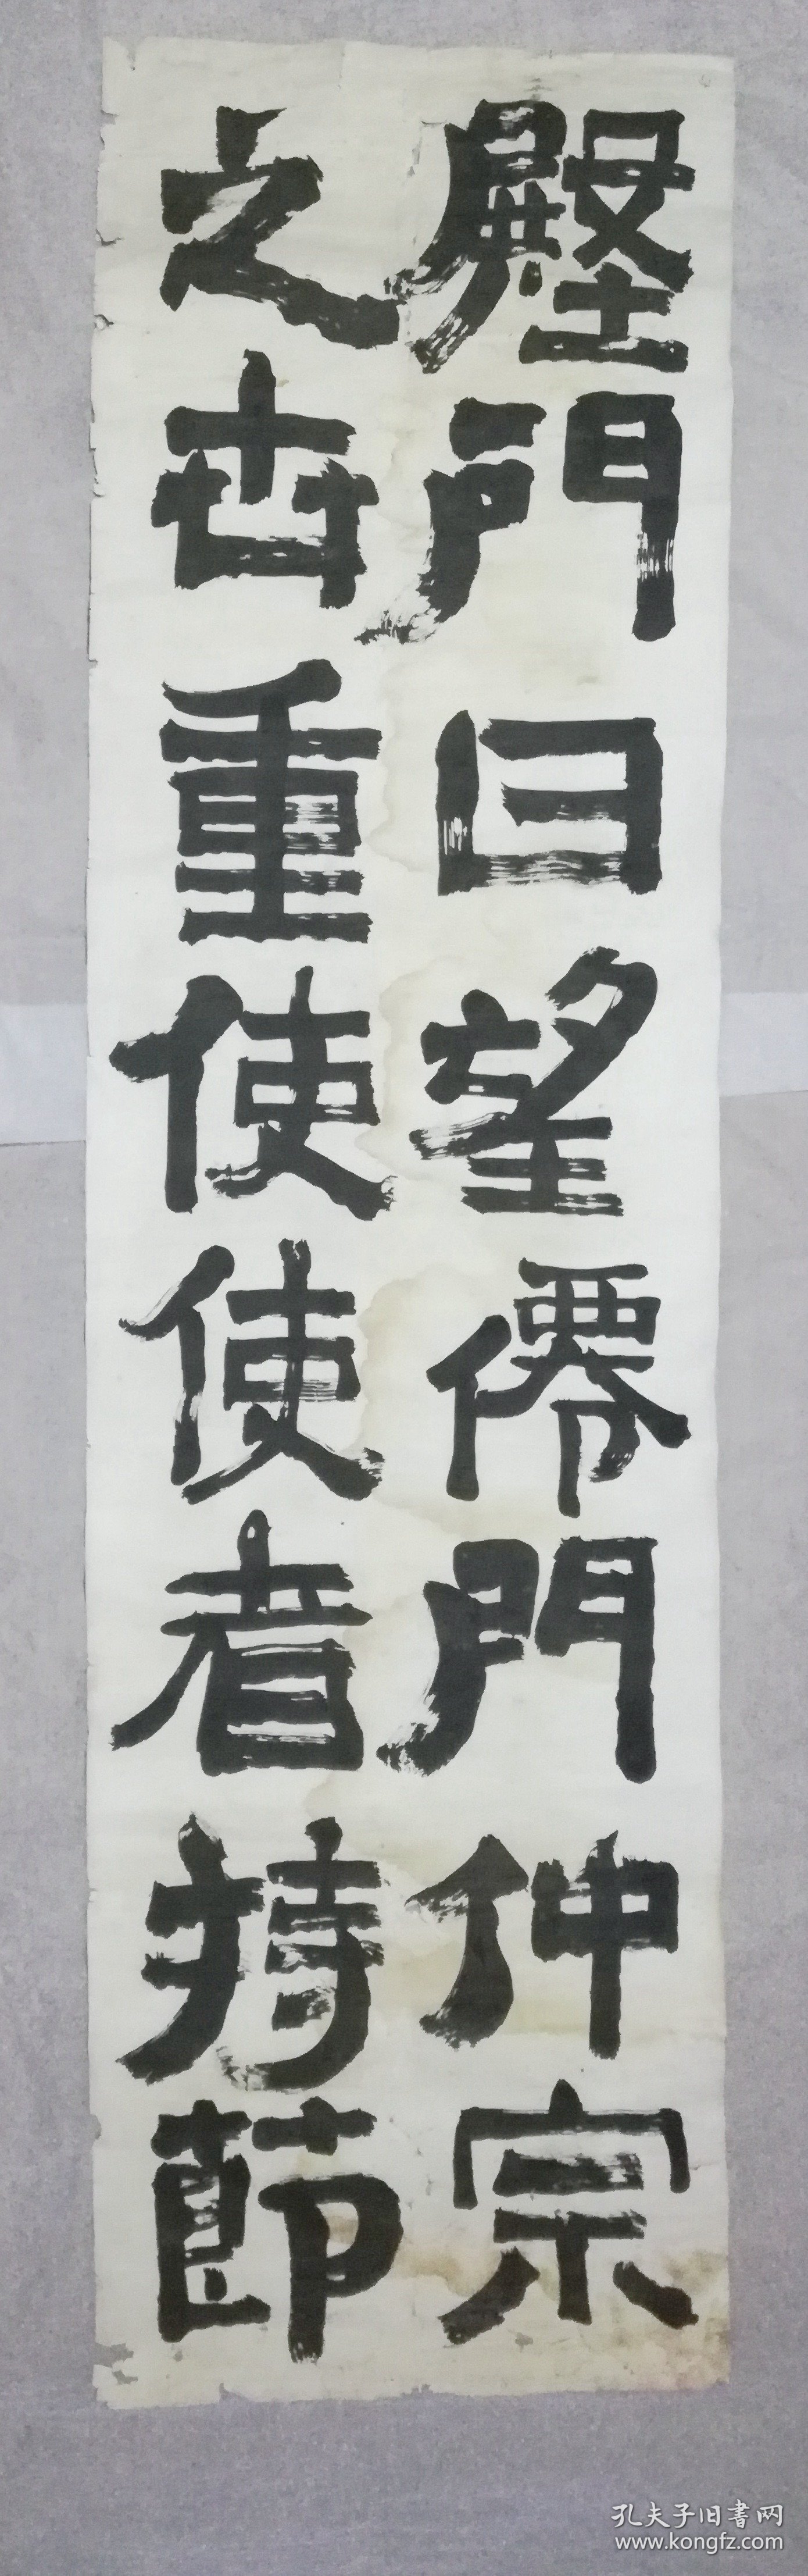 殿門曰望僊門仲宗
之世重使使者持節
孔夫子旧書网
www.kongfz.com